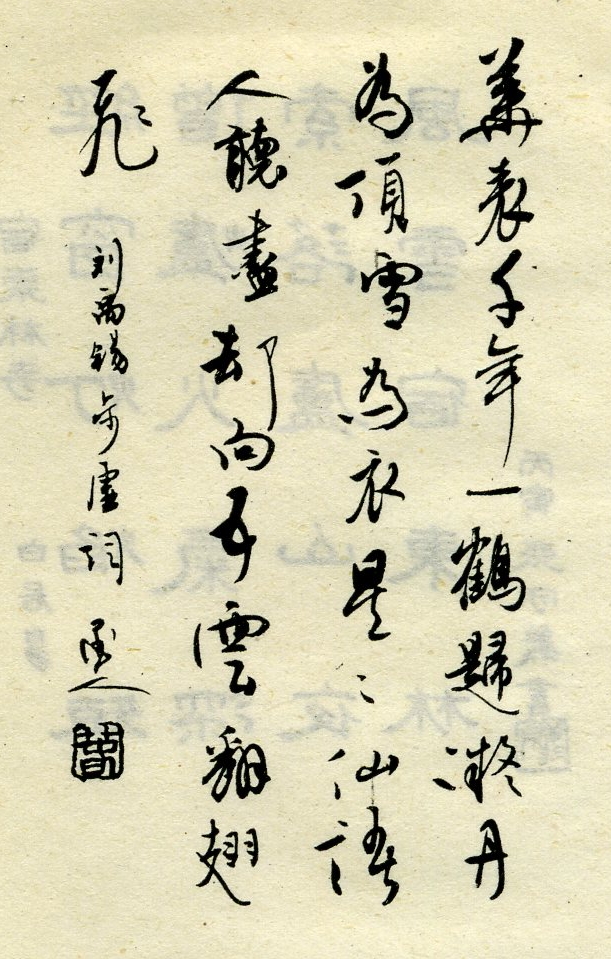 華表千年一鶴歸凝丹
為頂雪為衣星〻仙語
人聽盡却向五雲翻翅
飛
刘禹锡步虛詞